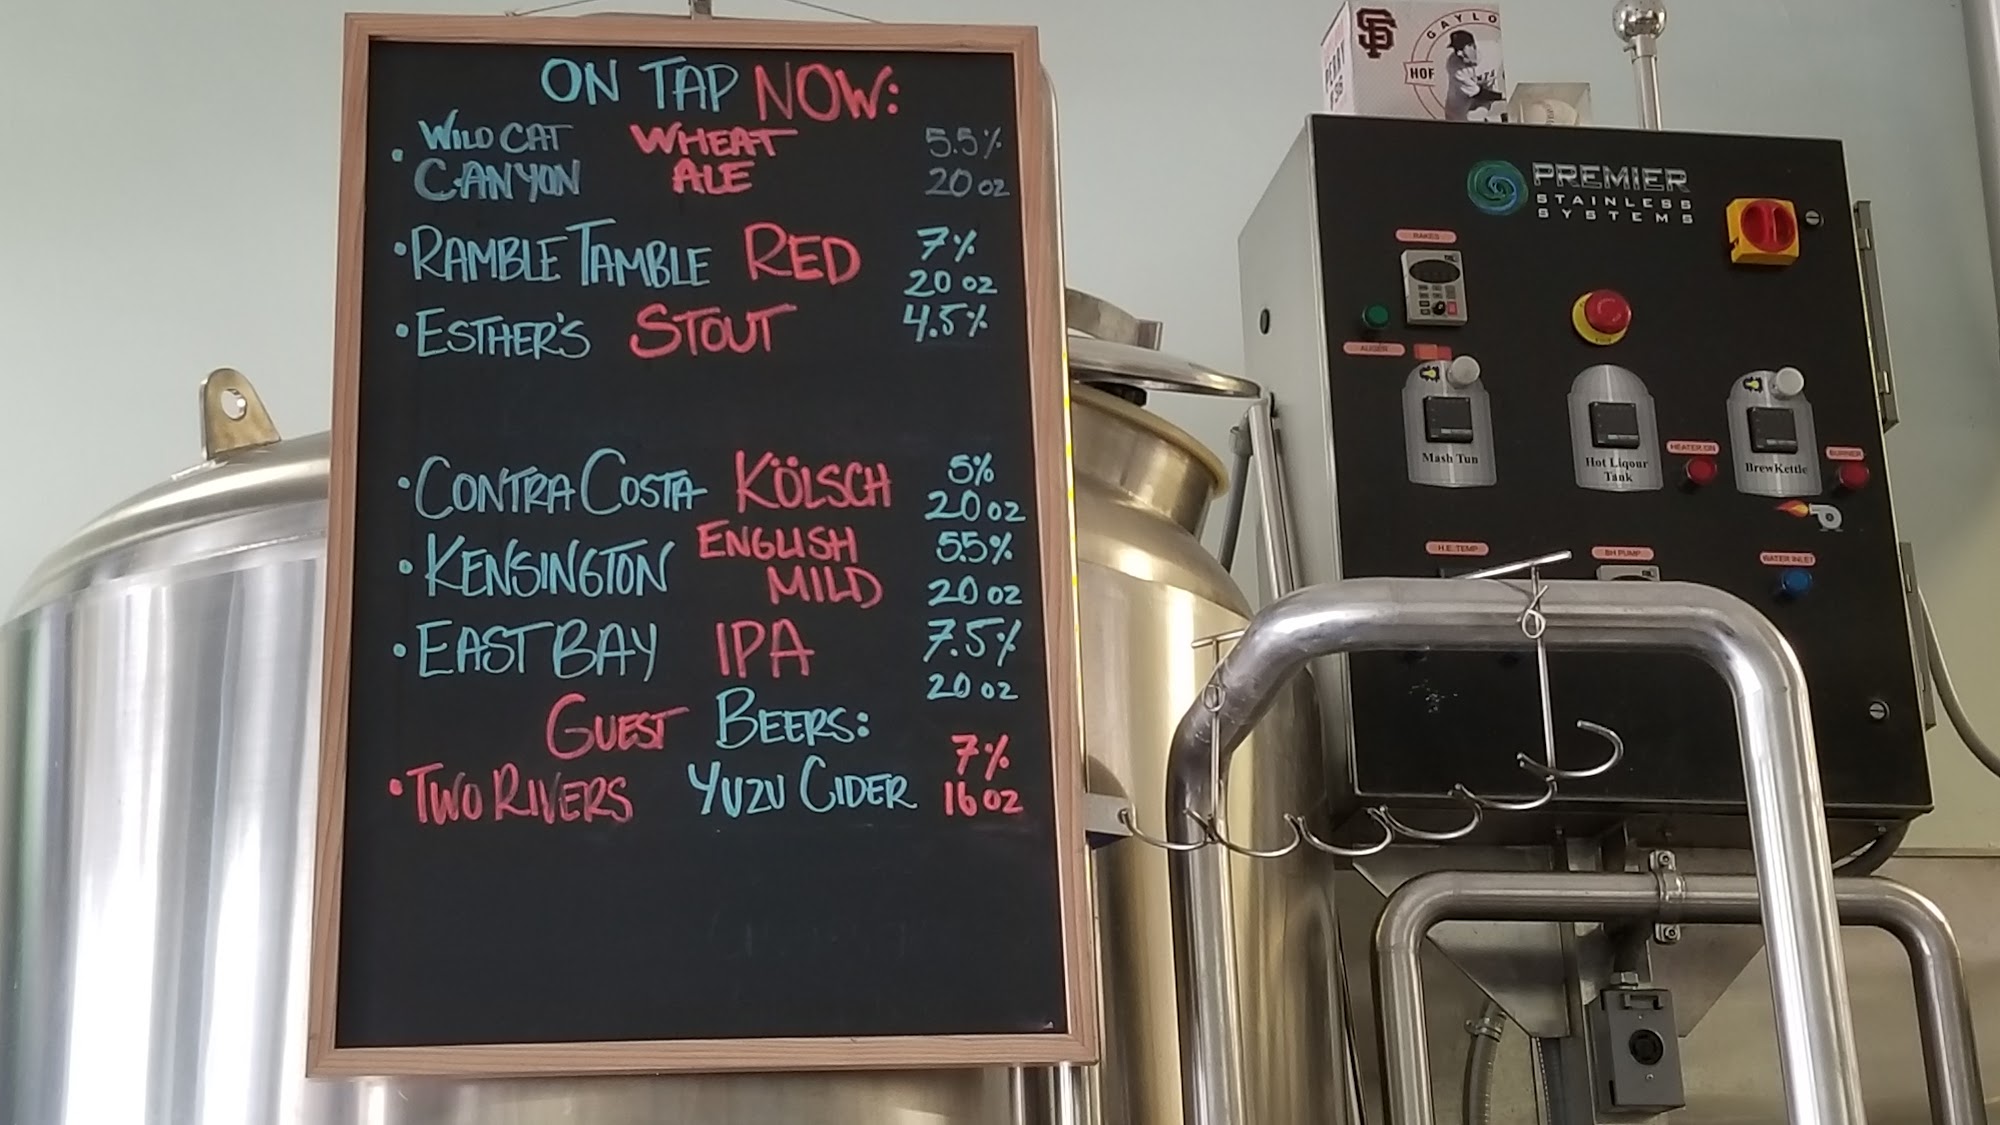 ON TAP NOW:
• WILD CAT CANYON WHEAT ALE 5.5% 20 oz
• RAMBLE TAMBLE RED 7% 20 oz
• ESTHER'S STOUT 4.5%
• CONTRA COSTA KÖLSCH 5% 20 oz
• KENSINGTON ENGLISH MILD 5.5% 20 oz
• EAST BAY IPA 7.5% 20 oz
GUEST BEERS:
• TWO RIVERS YUZU CIDER 7% 16 oz
SF
GAYLO
HOF
PERRY
#36
PREMIER
STAINLESS
SYSTEMS
RAKES
AUGER
Mash Tun
Hot Liqour
Tank
HEATER ON
BrewKettle
BURNER
H.E. TEMP
BH PUMP
WATER INLET